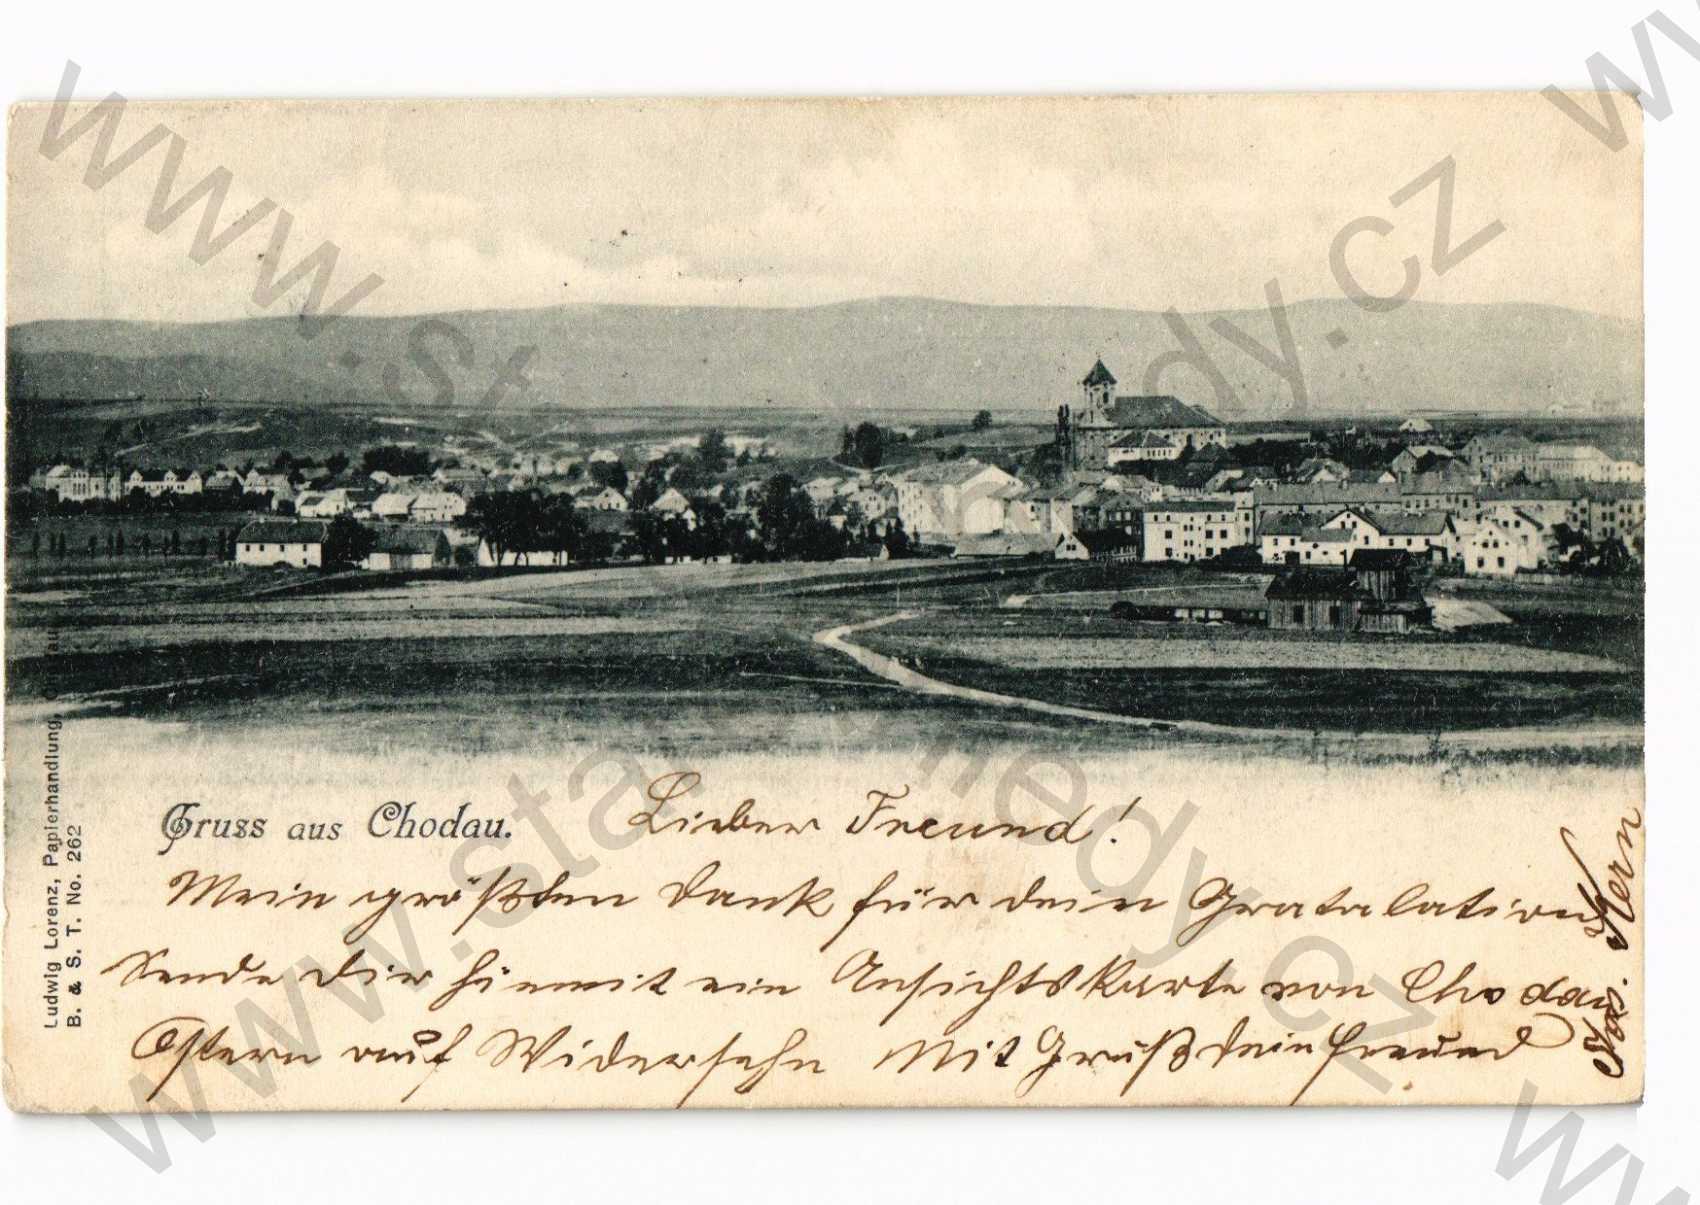 Gruss aus Chodau.
Lieber Freund!
Mein größten Dank für dein Gratalation
Sende dir hiemit ein Ansichtskarte von Chodau
Ostern auf Widersehn Mit Gruß dein freund
Jos. Kern
Ludwig Lorenz, Papierhandlung, Chodau
B. & S. T. No. 262
www.starepohledy.cz